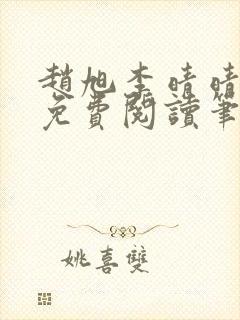 趙旭李晴晴
免費閱讀筆
姚喜雙